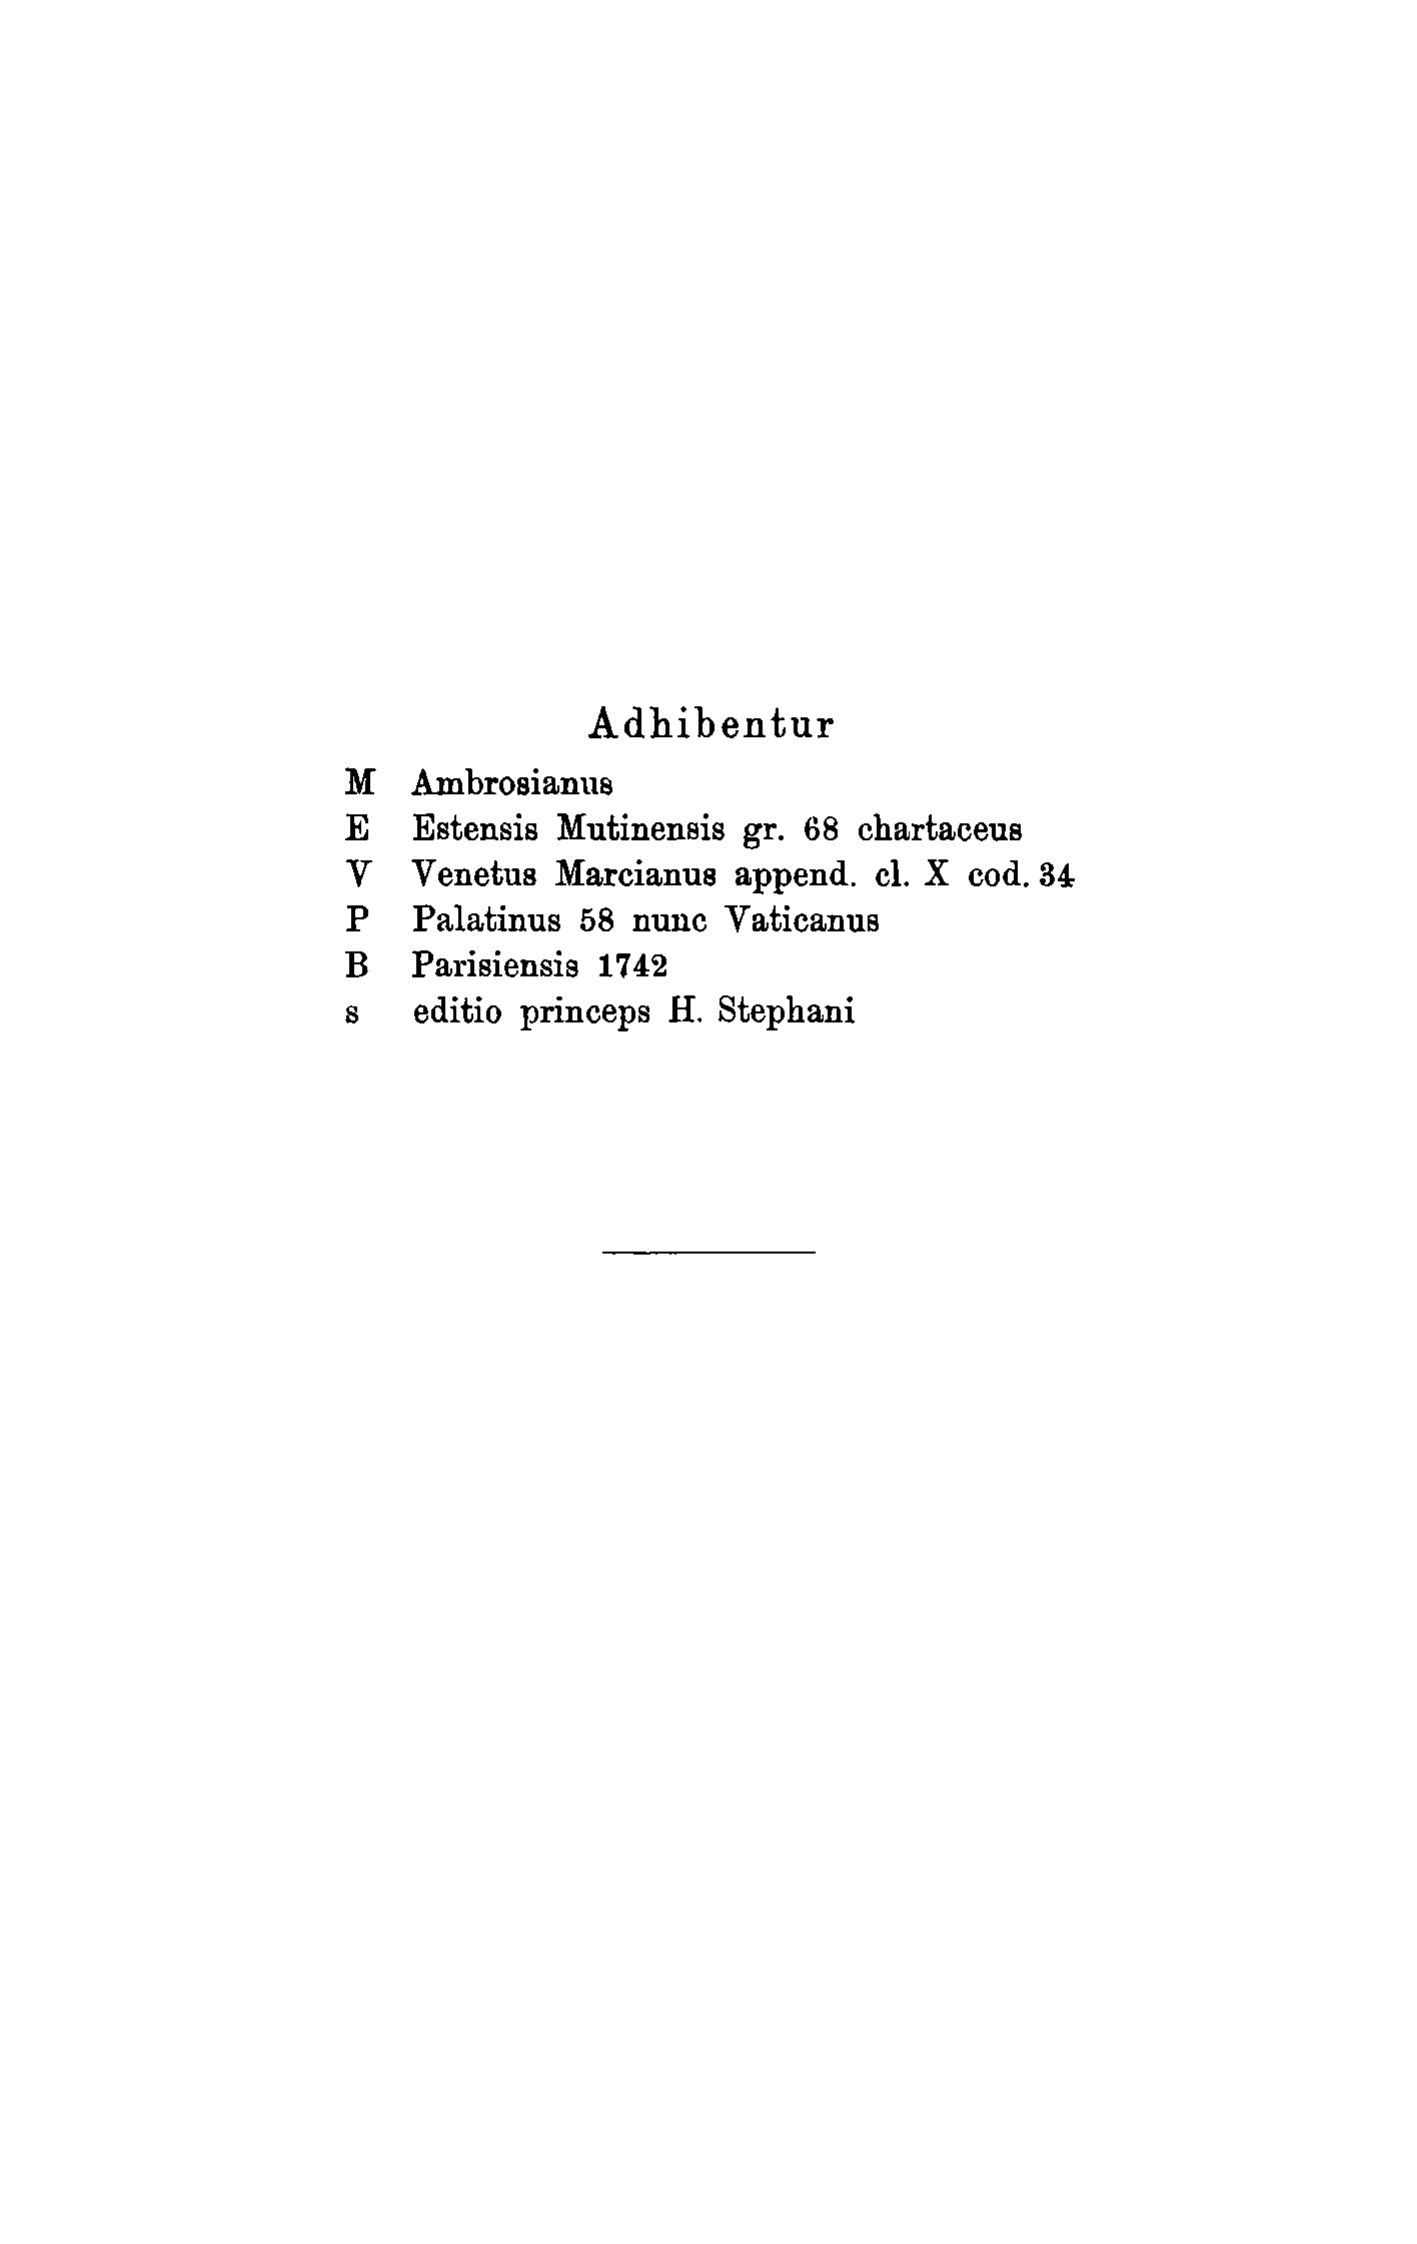 Adhibentur
M Ambrosianus
E Estensis Mutinensis gr. 68 chartaceus
V Venetus Marcianus append. cl. X cod. 34
P Palatinus 58 nunc Vaticanus
B Parisiensis 1742
s editio princeps H. Stephani